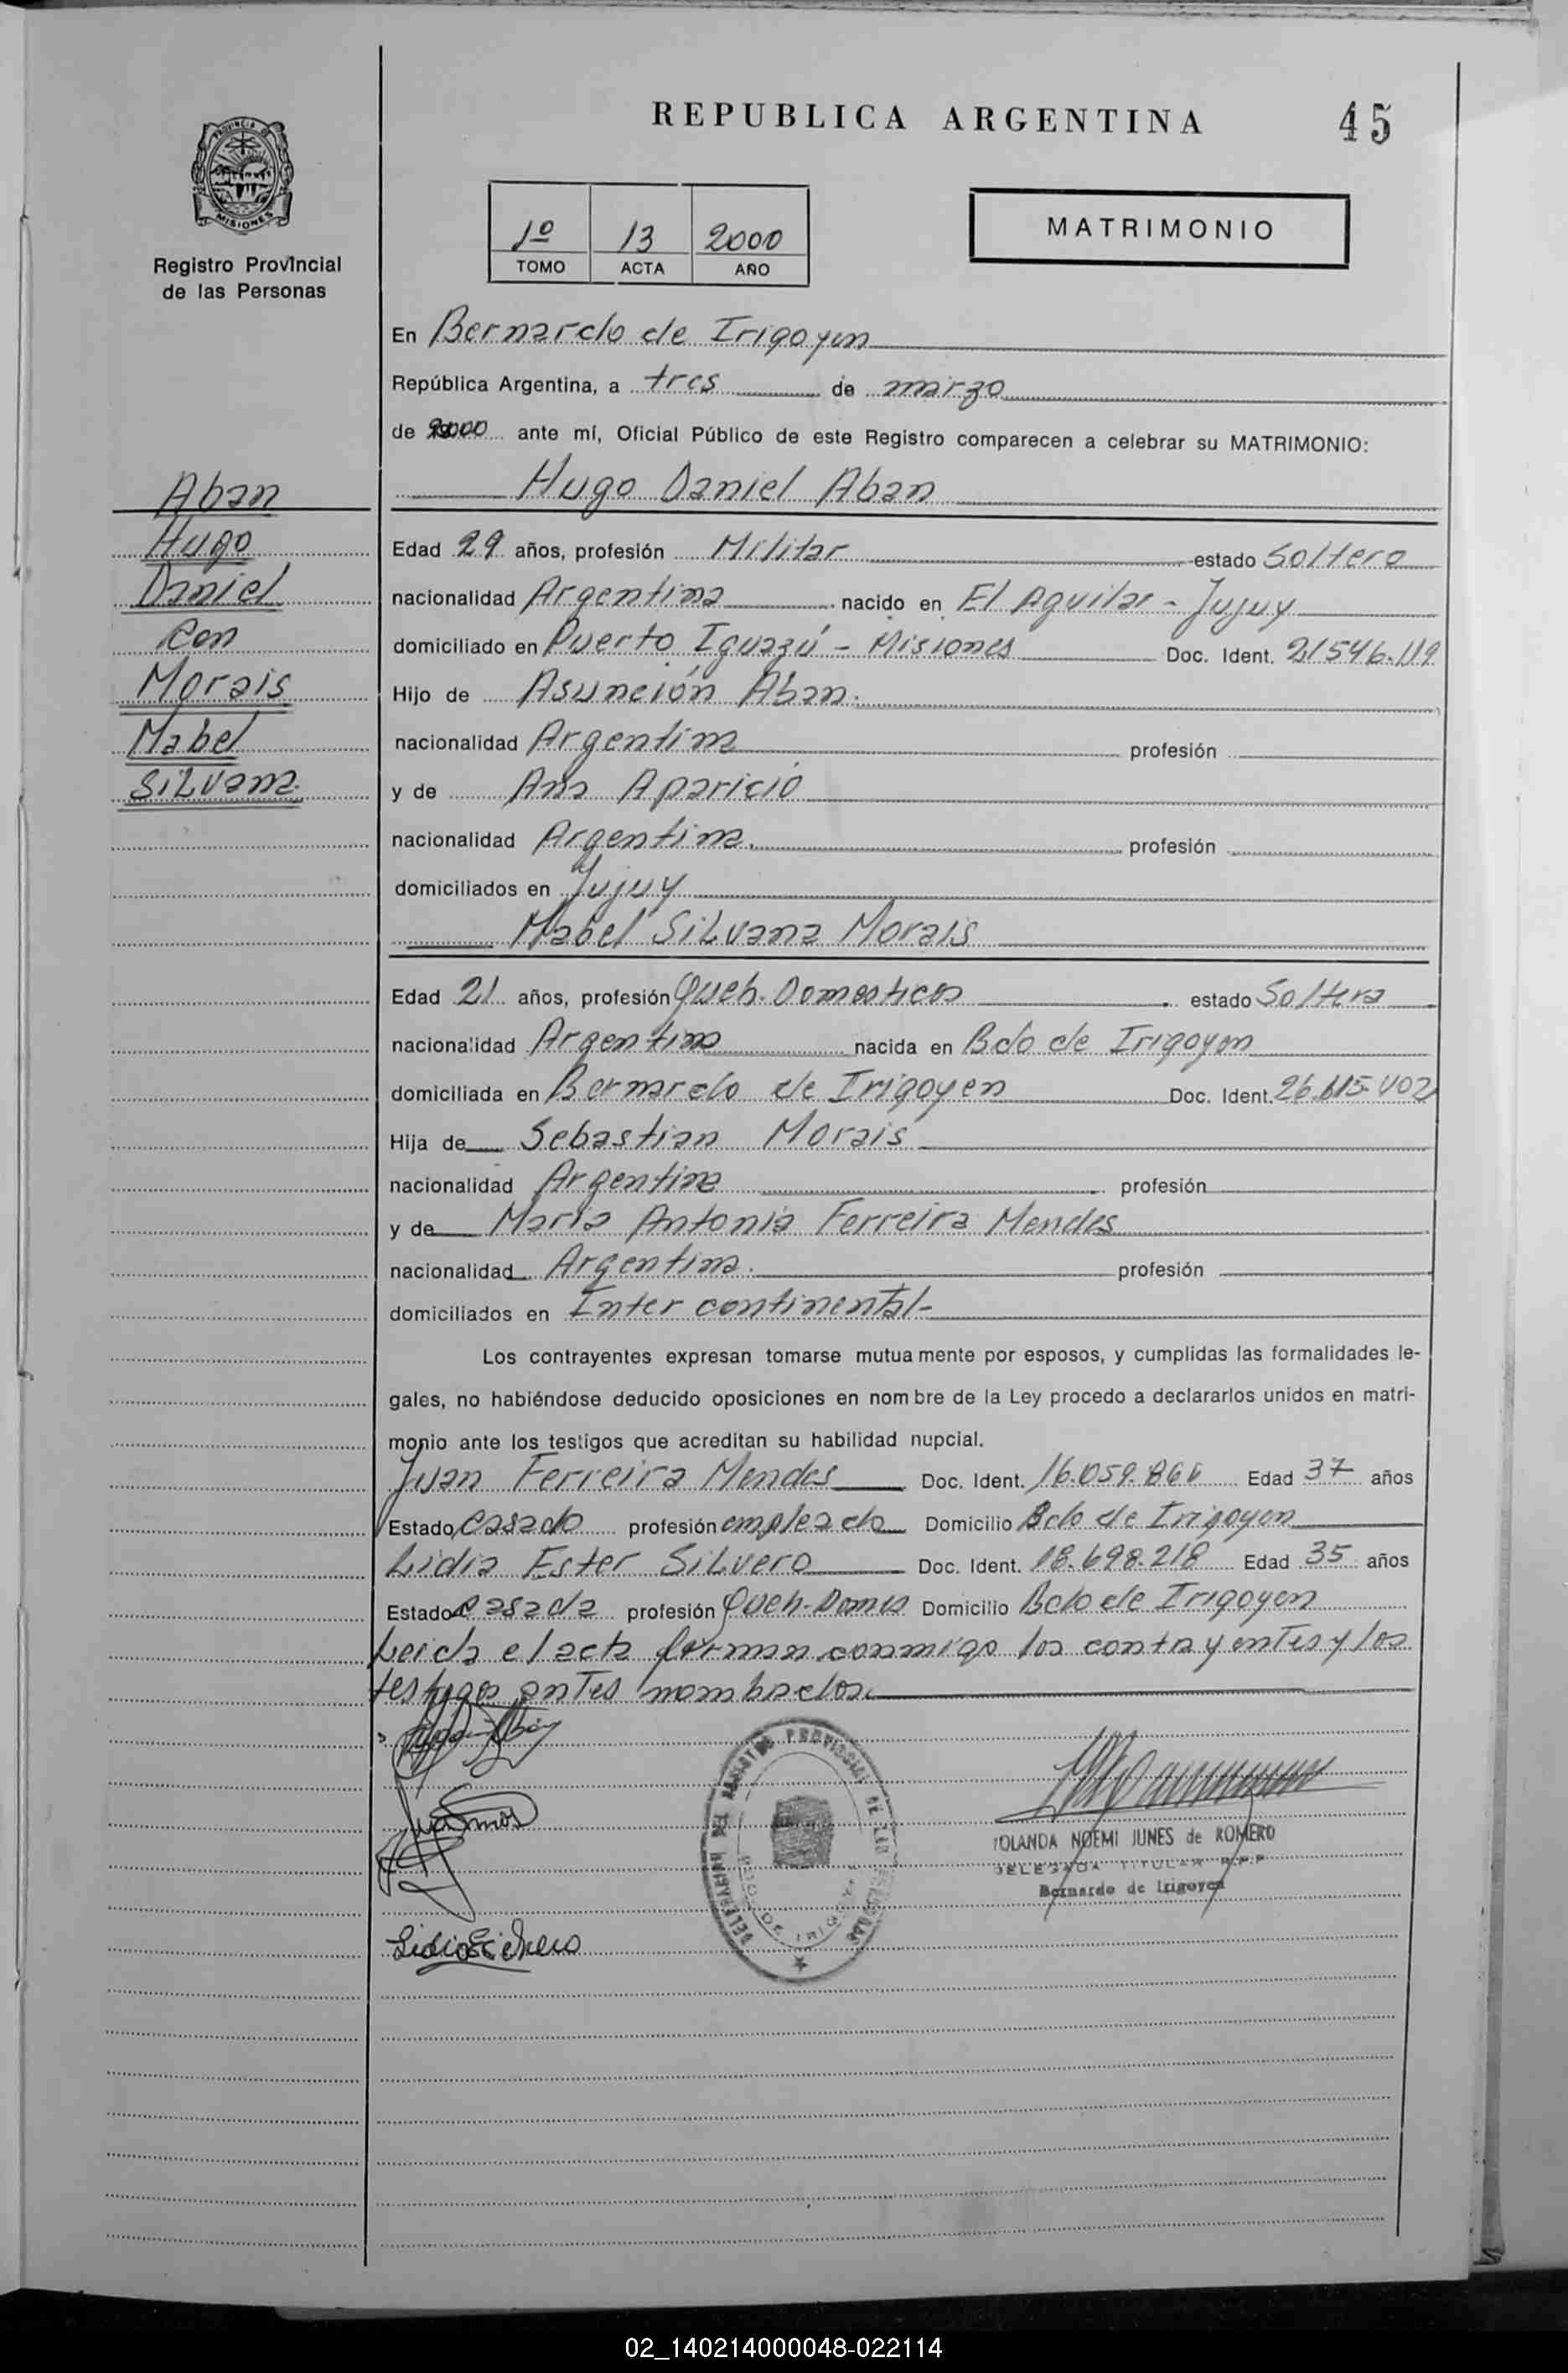 REPUBLICA ARGENTINA
45
PROVINCIA DE
MISIONES
Registro Provincial
de las Personas
1º 13 2000
TOMO ACTA AÑO
MATRIMONIO
En Bernardo de Irigoyen
República Argentina, a tres de marzo
de 2000 ante mí, Oficial Público de este Registro comparecen a celebrar su MATRIMONIO:
Hugo Daniel Aban
Aban
Hugo
Daniel
con
Morais
Mabel
Silvana
Edad 29 años, profesión Militar estado Soltero
nacionalidad Argentina nacido en El Aguilar - Jujuy
domiciliado en Puerto Iguazú - Misiones Doc. Ident. 21546.119
Hijo de Asunción Aban.
nacionalidad Argentina profesión
y de Ana Aparicio
nacionalidad Argentina. profesión
domiciliados en Jujuy
Mabel Silvana Morais
Edad 21 años, profesión Queh. Domesticos estado Soltera
nacionalidad Argentina nacida en Bdo de Irigoyen
domiciliada en Bernardo de Irigoyen Doc. Ident. 26.615.402
Hija de Sebastian Morais
nacionalidad Argentina profesión
y de Maria Antonia Ferreira Mendes
nacionalidad Argentina. profesión
domiciliados en Inter continental-
Los contrayentes expresan tomarse mutuamente por esposos, y cumplidas las formalidades le-
gales, no habiéndose deducido oposiciones en nombre de la Ley procedo a declararlos unidos en matri-
monio ante los testigos que acreditan su habilidad nupcial.
Juan Ferreira Mendes Doc. Ident. 16.059. Edad 37 años
Estado casado profesión empleado Domicilio Bdo de Irigoyen
Lidia Ester Silvero Doc. Ident. 18.698.218 Edad 35 años
Estado casada profesión Queh-Domes Domicilio Bdo de Irigoyen
Leida el acta firman conmigo los contrayentes y los
testigos antes nombrados.
REGISTRO PROVINCIAL DE LAS PERSONAS
BDO. DE IRIGOYEN
YOLANDA NOEMI JUNES de ROMERO
DELEGADA TITULAR R.P.P
Bernardo de Irigoyen
02_140214000048-022114